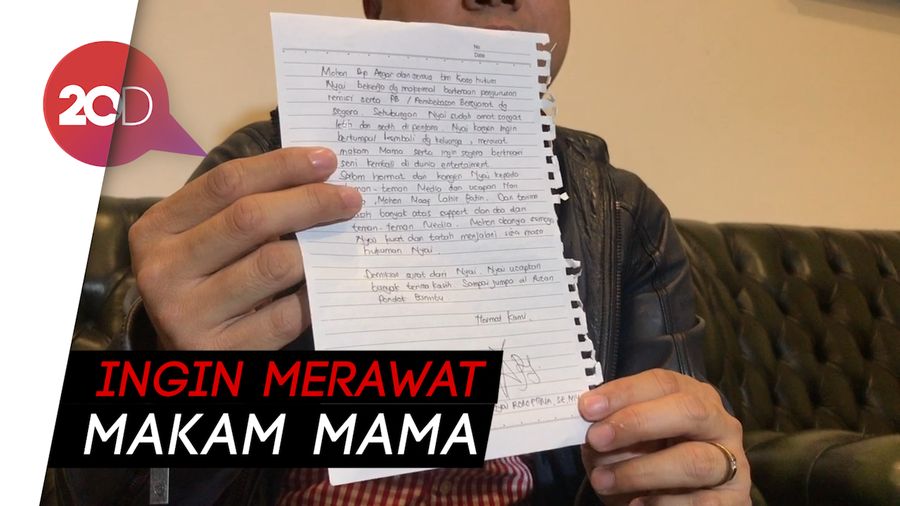 20D
No
Date
Mohon Bp Azgar dan semua tim kuasa hukum
Nyai bekerja dg maksimal berkenaan pengurusan
remisi serta PB / Pembebasan Bersyarat dg
segera. Sehubungan Nyai sudah amat sangat
letih dan sedih di penjara. Nyai kangen ingin
bertumpu kembali dg keluarga, merawat
makam Mama serta ingin segera berkreasi
seni kembali di dunia entertaiment.
Salam hormat dan kangen Nyai kepada
teman-teman Media dan ucapan
, Mohon Maaf Lahir Batin. Dan terima
kasih banyak atas support dan doa dari
teman-teman Media. Mohon doanya semoga
Nyai kuat dan tabah menjalani sisa masa
hukuman Nyai.
Demikian surat dari Nyai. Nyai ucapkan
banyak terima kasih Sampai jumpa di Rutan
Pondok Bambu
Hormat Kami,
INGIN MERAWAT
MAKAM MAMA